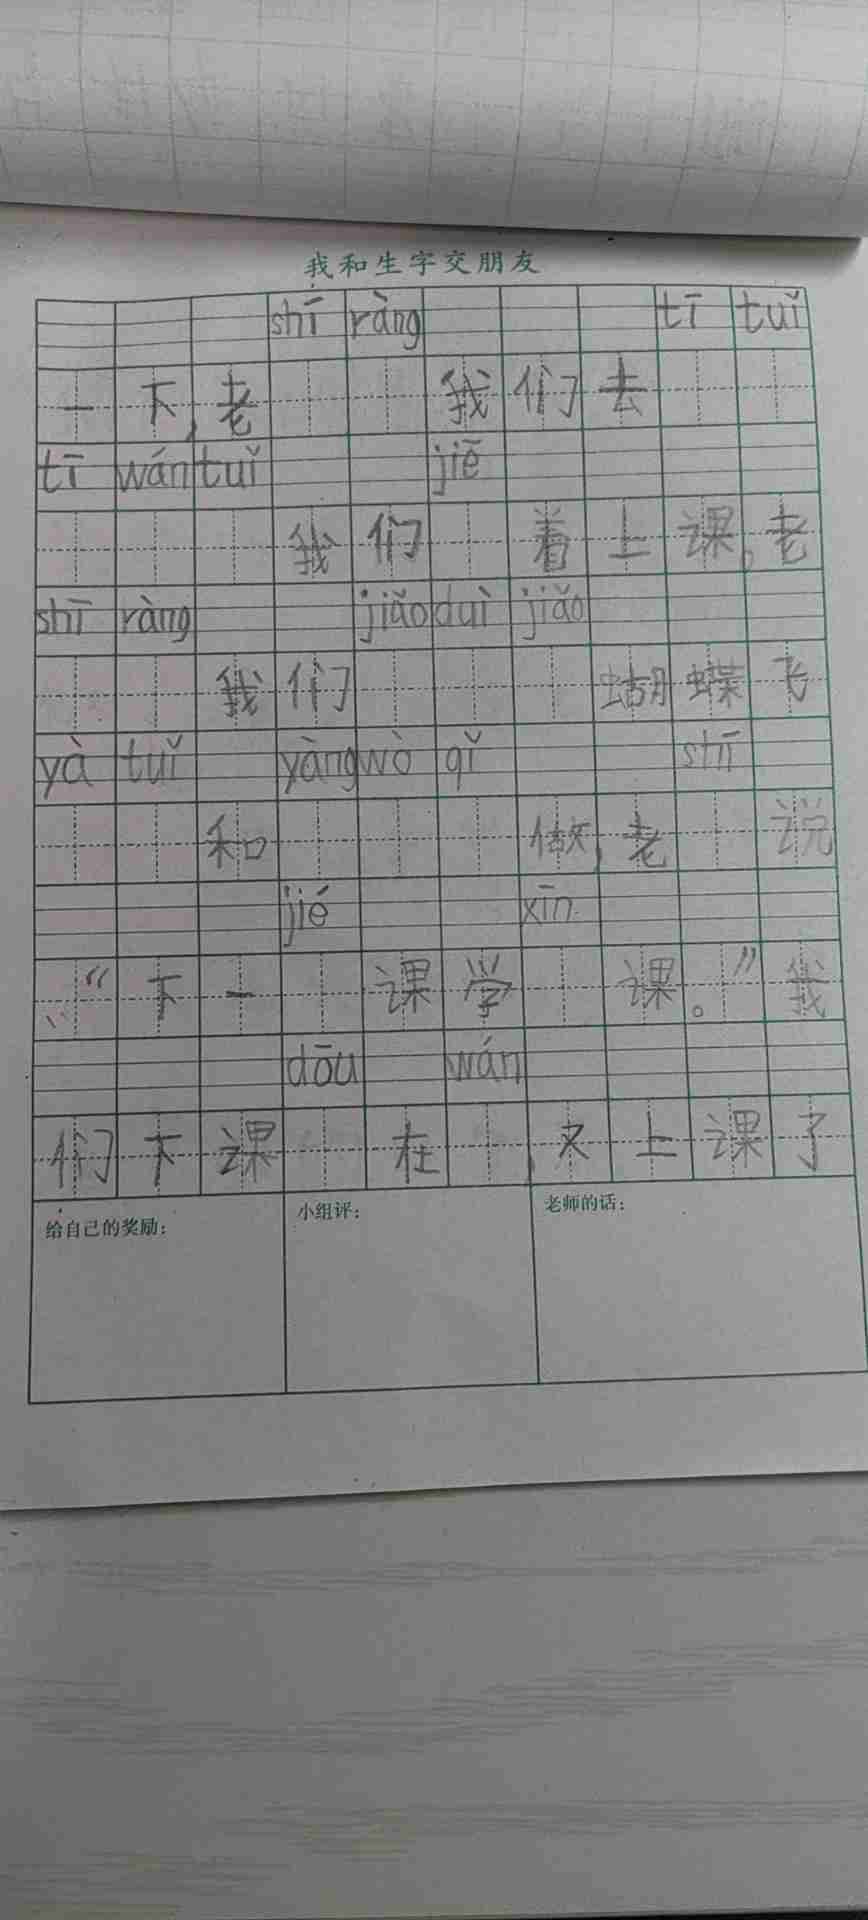 我和生字交朋友
shī ràng tī tuǐ
一下,老我们去
tī wán tuǐ jiē
我们着上课,老
shī ràng jiǎo duì jiǎo
我们蝴蝶飞
yà tuǐ yàng wò qǐ shī
和做,老说
jié xīn
:“下一课学课。”我
dōu wán
们下课在,又上课了
给自己的奖励:
小组评:
老师的话: